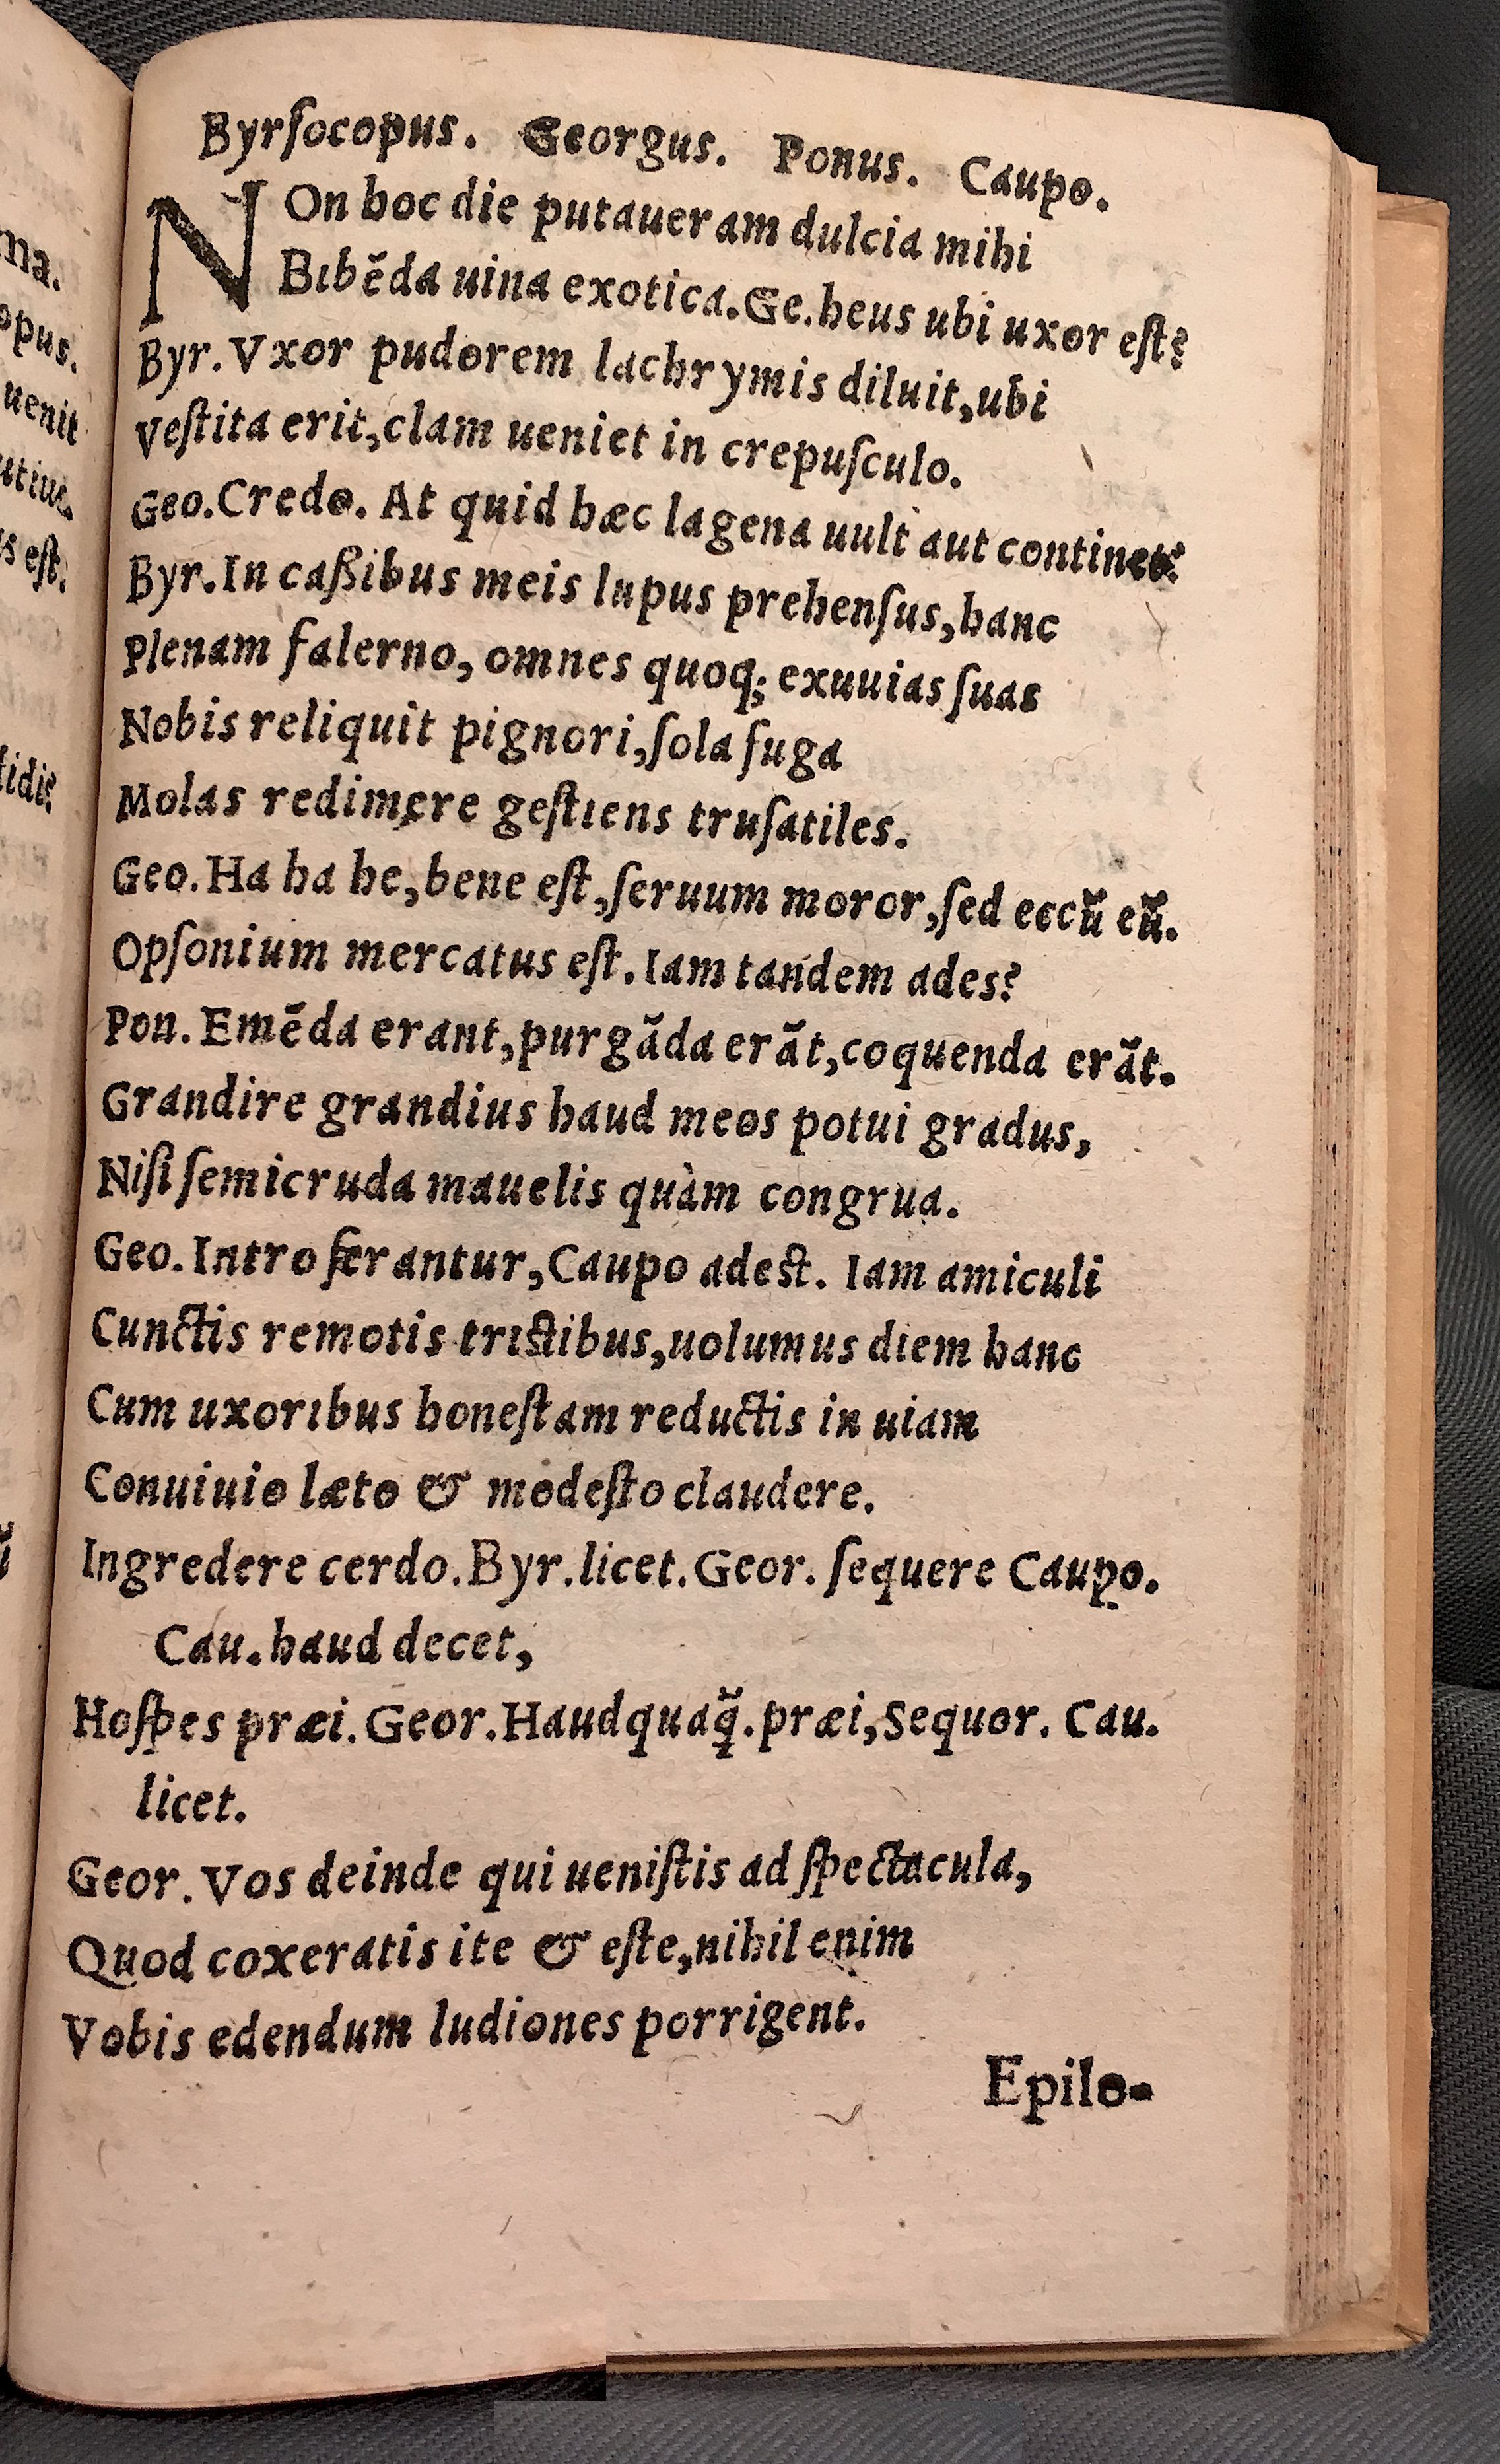 Byrſocopus. Georgus. Ponus. Caupo.
NOn hoc die putaueram dulcia mihi
Bibēda uina exotica. Ge. heus ubi uxor eſt?
Byr. Vxor pudorem lachrymis diluit, ubi
Veſtita erit, clam ueniet in crepuſculo.
Geo. Credo. At quid hæc lagena uult aut continet?
Byr. In caßibus meis lupus prehenſus, hanc
Plenam falerno, omnes quoq; exuuias ſuas
Nobis reliquit pignori, ſola fuga
Molas redimere geſtiens truſatiles.
Geo. Ha ha he, bene eſt, ſeruum moror, ſed eccũ eũ.
Opſonium mercatus eſt. Iam tandem ades?
Pon. Emēda erant, purgāda erāt, coquenda erāt.
Grandire grandius haud meos potui gradus,
Niſi ſemicruda mauelis quàm congrua.
Geo. Intro ferantur, Caupo adeſt. Iam amiculi
Cunctis remotis triſtibus, uolumus diem hanc
Cum uxoribus honeſtam reductis in uiam
Conuiuio læto & modeſto claudere.
Ingredere cerdo. Byr. licet. Geor. ſequere Caupo.
Cau. haud decet,
Hoſpes præi. Geor. Haudquaq̃. præi, Sequor. Cau.
licet.
Geor. Vos deinde qui ueniſtis ad ſpectacula,
Quod coxeratis ite & eſte, nihil enim
Vobis edendum ludiones porrigent.
Epilo-
ma.
opus.
uenit
utius.
s eſt.
ſidi?